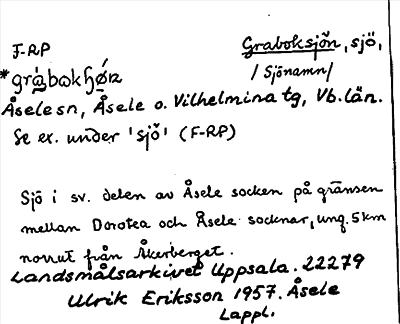 F-RP
Graboksjön, sjö,
/Sjönamn/
Åselesn, Åsele o. Vilhelmina tg, Vb. län.
Se ex. under 'sjö' (F-RP)
Sjö i sv. delen av Åsele socken på gränsen
mellan Dorotea och Åsele socknar, ung. 5 km
norrut från Åkerberget.
Landsmålsarkivet Uppsala. 22279
Ulrik Eriksson 1957. Åsele
Lappl.